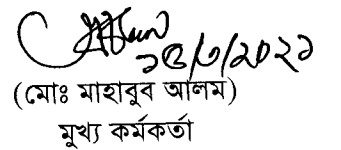 ১৫/৩/২০২১
(মোঃ মাহাবুব আলম)
মুখ্য কর্মকর্তা